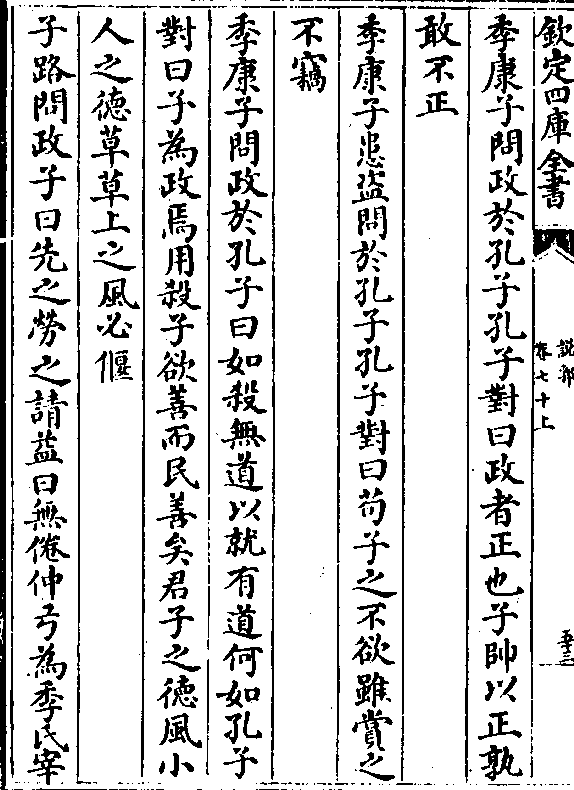 欽定四庫全書
說郛
卷七十上
五十三
季康子問政於孔子孔子對曰政者正也子帥以正孰
敢不正
季康子患盗問於孔子孔子對曰苟子之不欲雖賞之
不竊
季康子問政於孔子曰如殺無道以就有道何如孔子
對曰子為政焉用殺子欲善而民善矣君子之徳風小
人之徳草草上之風必偃
子路問政子曰先之勞之請益曰無倦仲弓為季氏宰